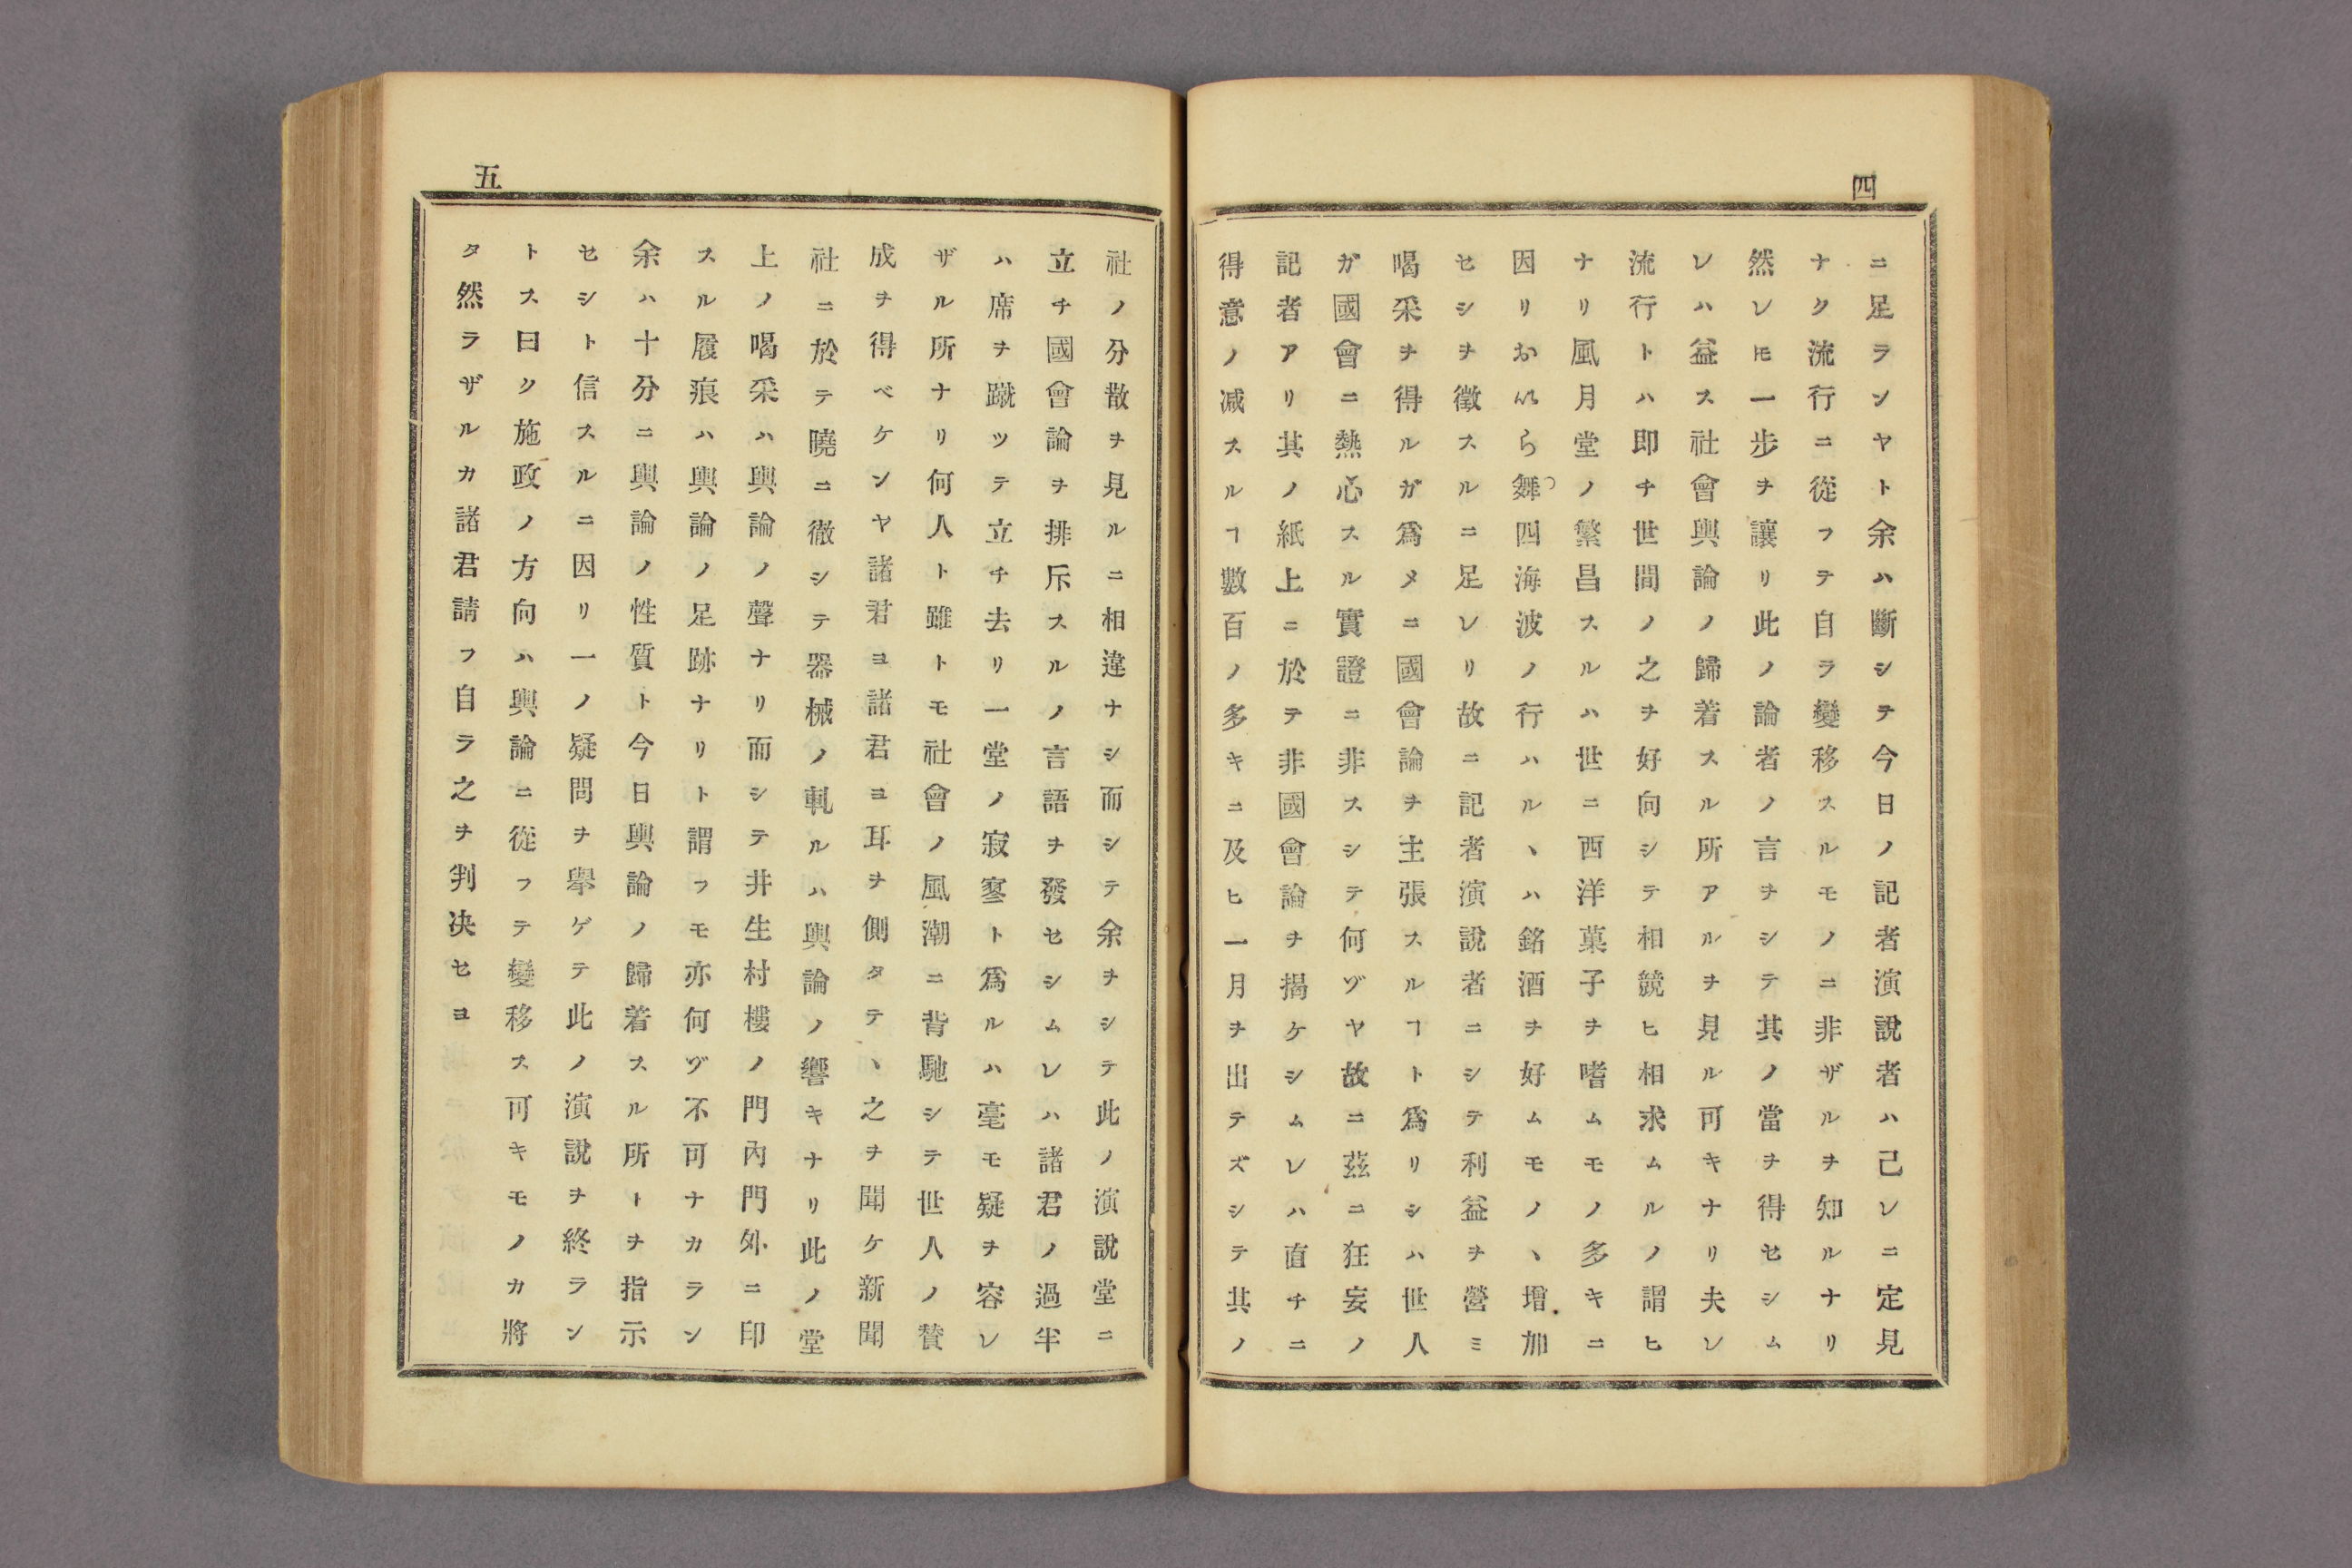 四
ニ足ランヤト余ハ斷シテ今日ノ記者演說者ハ己レニ定見
ナク流行ニ從フテ自ラ變移スルモノニ非ザルヲ知ルナリ
然レ𪜈一步ヲ讓リ此ノ論者ノ言ヲシテ其ノ當ヲ得セシム
レハ益ス社會輿論ノ歸着スル所アルヲ見ル可キナリ夫レ
流行トハ即チ世間ノ之ヲ好向シテ相競ヒ相求ムルノ謂ヒ
ナリ風月堂ノ繁昌スルハ世ニ西洋菓子ヲ嗜ムモノノ多キニ
因リお以ら舞四海波ノ行ハルヽハ銘酒ヲ好ムモノヽ增加
セシヲ徵スルニ足レリ故ニ記者演說者ニシテ利益ヲ營ミ
喝采ヲ得ルガ爲メニ國會論ヲ主張スルヿト爲リシハ世人
ガ國會ニ熱心スル實證ニ非スシテ何ヅヤ故ニ茲ニ狂妄ノ
記者アリ其ノ紙上ニ於テ非國會論ヲ揭ケシムレハ直チニ
得意ノ减スルヿ數百ノ多キニ及ヒ一月ヲ出テズシテ其ノ
五
社ノ分散ヲ見ルニ相違ナシ而シテ余ヲシテ此ノ演說堂ニ
立チ國會論ヲ排斥スルノ言語ヲ發セシムレハ諸君ノ過半
ハ席ヲ蹴ツテ立チ去リ一堂ノ寂寥ト爲ルハ毫モ疑ヲ容レ
ザル所ナリ何人ト雖トモ社會ノ風潮ニ背馳シテ世人ノ賛
成ヲ得ベケンヤ諸君ヨ諸君ヨ耳ヲ側タテヽ之ヲ聞ケ新聞
社ニ於テ曉ニ徹シテ器械ノ軋ルハ輿論ノ響キナリ此ノ堂
上ノ喝采ハ輿論ノ聲ナリ而シテ井生村樓ノ門內門外ニ印
スル履痕ハ輿論ノ足跡ナリト謂フモ亦何ヅ不可ナカラン
余ハ十分ニ輿論ノ性質ト今日輿論ノ歸着スル所トヲ指示
セシト信スルニ因リ一ノ疑問ヲ擧ゲテ此ノ演說ヲ終ラン
トス曰ク施政ノ方向ハ輿論ニ從フテ變移ス可キモノカ將
タ然ラザルカ諸君請フ自ラ之ヲ判决セヨ